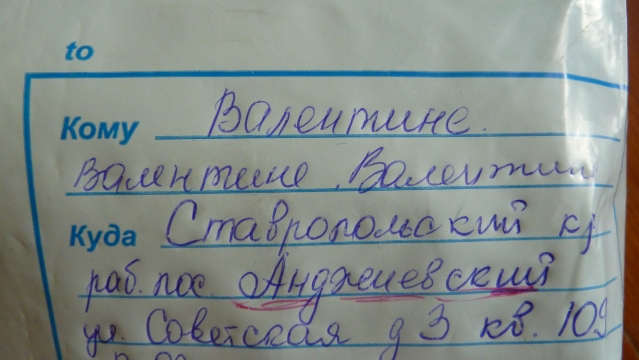 to
Кому Валентине.
Валентине Валентин
Куда Ставропольский кр
раб. пос. Анджиевский
ул. Советская д 3 кв. 109